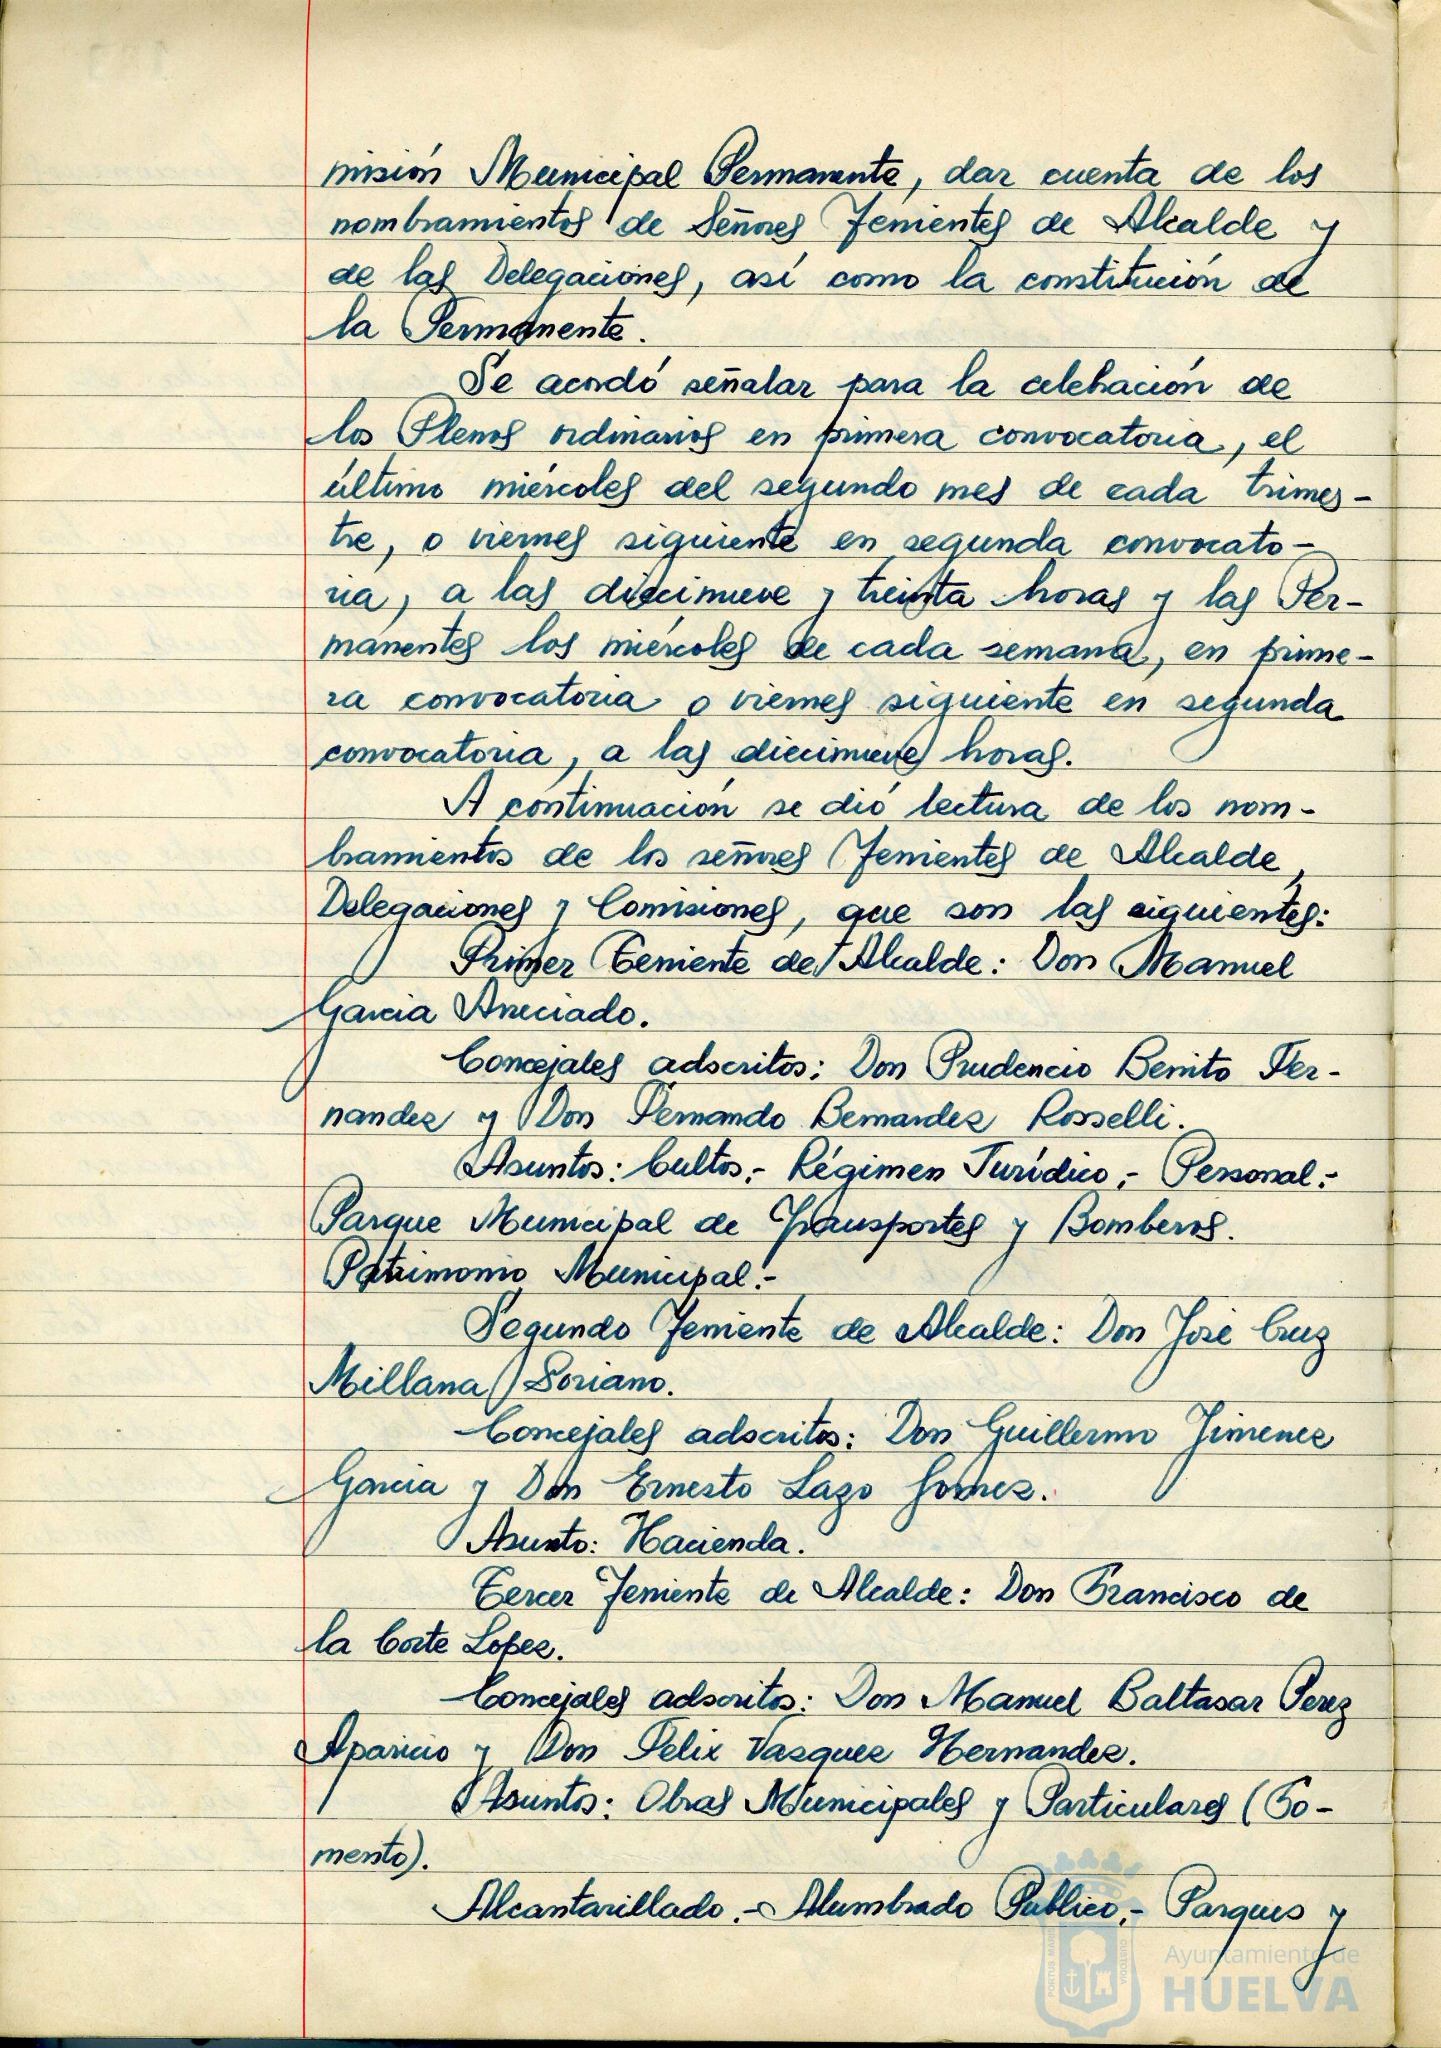 misión Municipal Permanente, dar cuenta de los
nombramientos de Señores Tenientes de Alcalde y
de las Delegaciones, así como la constitución de
la Permanente.
Se acordó señalar para la celebración de
los Plenos ordinarios en primera convocatoria, el
último miércoles del segundo mes de cada trimes-
tre, o viernes siguiente en segunda convocato-
ria, a las diecinueve y treinta horas y las Per-
manentes los miércoles de cada semana, en prime-
ra convocatoria o viernes siguiente en segunda
convocatoria, a las diecinueve horas.
A continuación se dió lectura de los nom-
bramientos de los señores Tenientes de Alcalde,
Delegaciones y Comisiones, que son las siguientes:
Primer Teniente de Alcalde: Don Manuel
Garcia Arreciado.
Concejales adscritos: Don Prudencio Benito Fer-
nandez y Don Fernando Bernardez Rosselli.
Asuntos: Cultos,- Régimen Jurídico,- Personal.-
Parque Municipal de Transportes y Bomberos.
Patrimonio Municipal.-
Segundo Teniente de Alcalde: Don José Cruz
Millana Soriano.
Concejales adscritos: Don Guillermo Jimenez
Garcia y Don Ernesto Lazo Gomez.
Asunto: Hacienda.
Tercer Teniente de Alcalde: Don Francisco de
la Corte Lopez.
Concejales adscritos: Don Manuel Baltasar Perez
Aparicio y Don Felix Vazquez Hernandez.
Asuntos: Obras Municipales y Particulares (Fo-
mento).
Alcantarillado.- Alumbrado Publico,- Parques y
Ayuntamiento de
HUELVA